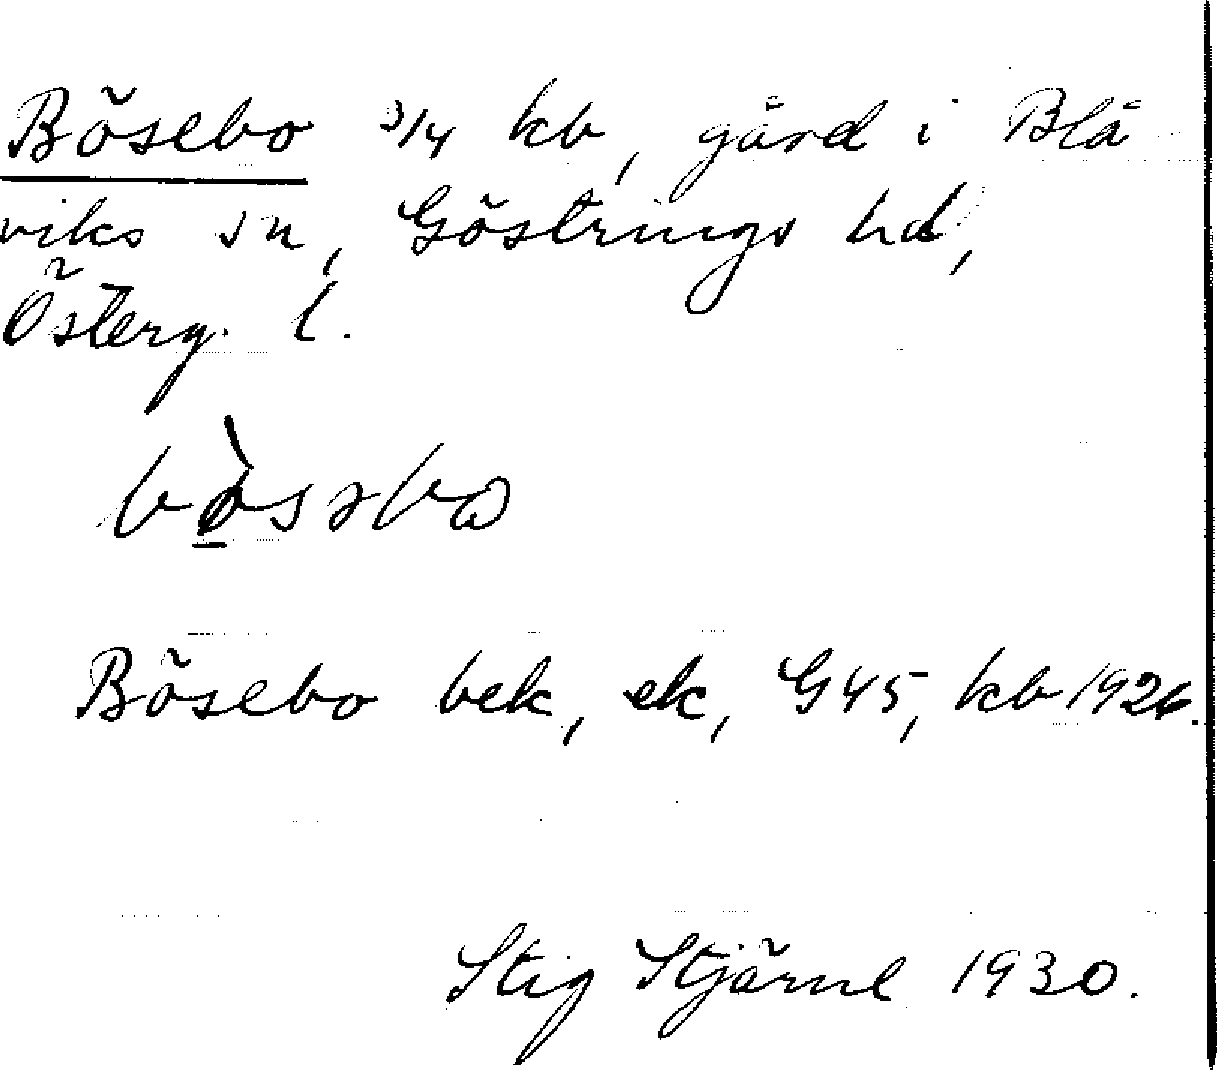 Bösebo 3/4 kb, gård i Blå
viks sn, Göstrings hd,
Österg. l.
bòsəbω
Bösebo bek, ek, G45, kb 1926.
Stig Stjärne 1930.